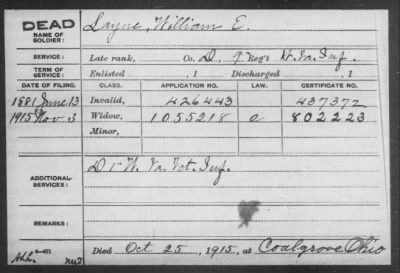 DEAD
NAME OF SOLDIER: Layne, William E.
SERVICE: Late rank, Co. D, 9 Reg't W. Va. Inf.
TERM OF SERVICE: Enlisted , 1 Discharged , 1
DATE OF FILING. CLASS. APPLICATION NO. LAW. CERTIFICATE NO.
1881 June 13 Invalid, 426443 437372
1915 Nov 3 Widow, 1055218 a 802223
Minor,
ADDITIONAL SERVICES: D 1" W. Va. Vet. Inf.
REMARKS:
Died Oct 25, 1915, at Coalgrove Ohio